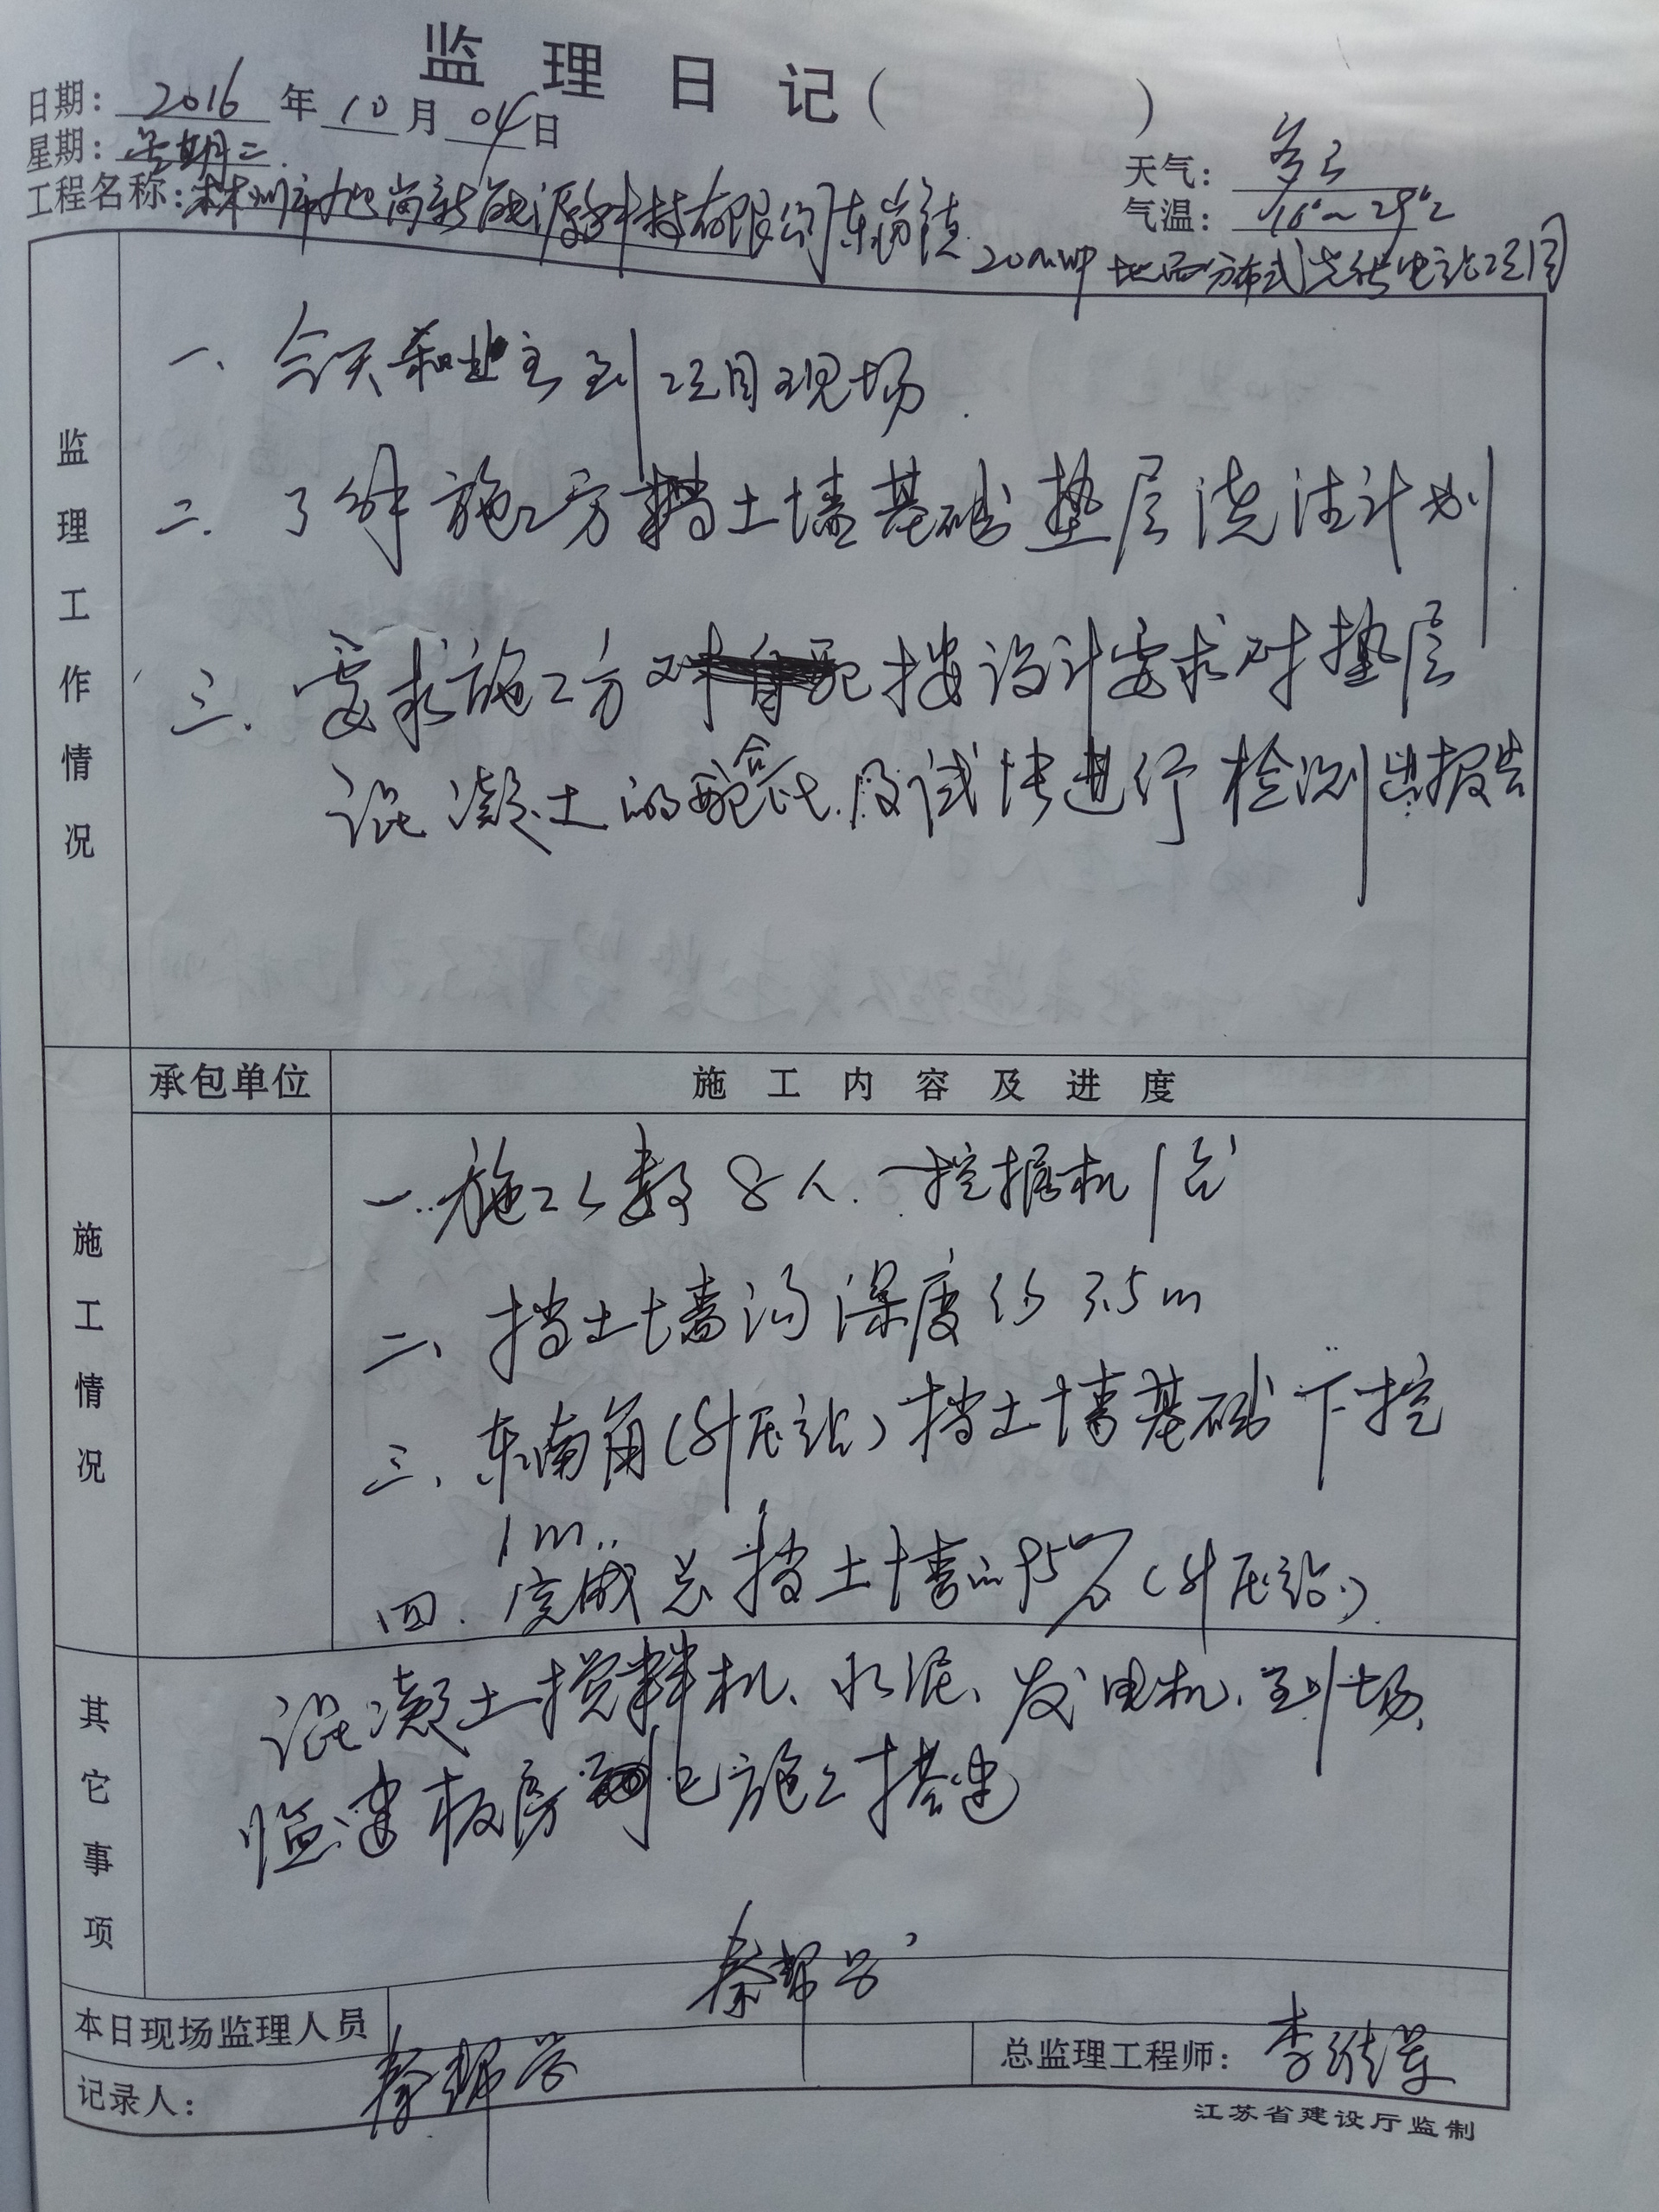 监理日记（ ）
日期：2016年10月04日
星期：星期二
天气：多云
气温：16°~29℃
工程名称：株州市旭尚新能源科技有限公司东岗镇
20MWP 地面分布式光伏电站项目
监理工作情况
一、今天和业主到项目现场.
二. 了解施工方挡土墙基础垫层浇注计划
三. 要求施工方对 按设计要求对垫层
混凝土的配合比及试块进行检测出报告
承包单位
施工内容及进度
施工情况
一. 施工人数8人. 挖掘机1台
二、挡土墙沟深度约3.5m
三、东南角(升压站)挡土墙基础下挖
1m..
四. 完成总挡土墙的95%(升压站).
其它事项
混凝土搅料机、水泥、发电机、到场,
临建板房 已施工搭建
本日现场监理人员
秦帮学
记录人：
秦帮学
总监理工程师：李
江苏省建设厅监制